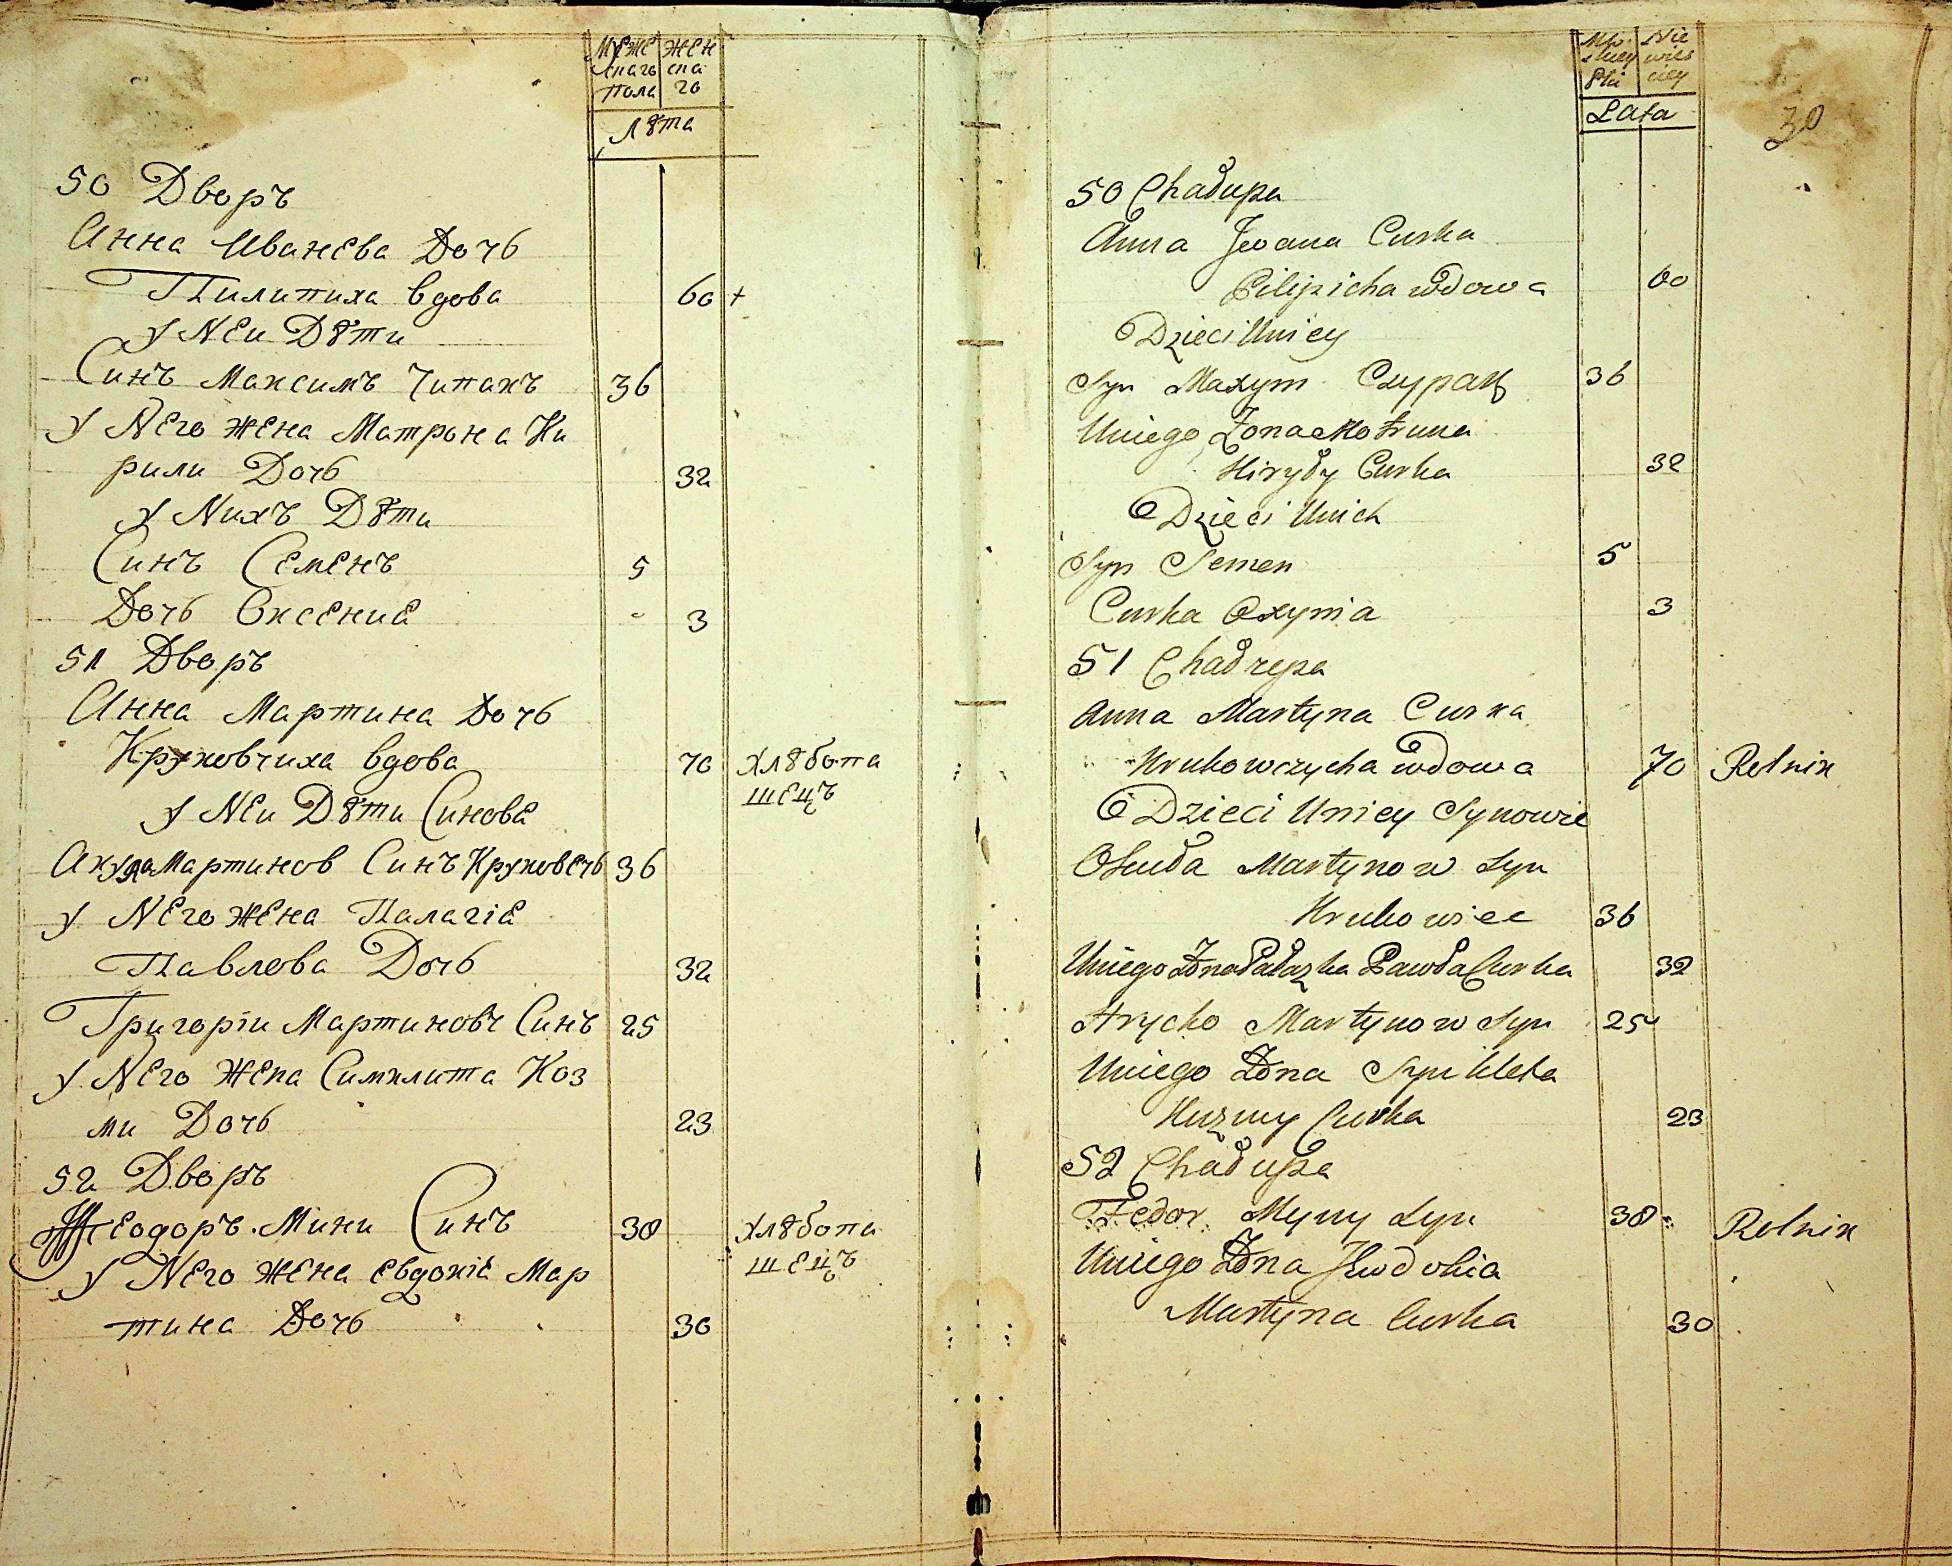 МУЖЕ ЖЕН
скаго ска
Пола го
Лѣта
50 Дворъ
Анна Иванева Дочь
Пилипиха вдова 60 +
у Неи Дѣти
Синъ Максимъ Чипакъ 36
у Него жена Матрона Ки
рили Дочь 32
у Нихъ Дѣти
Синъ Семенъ 5
Дочь Оксениѐ - 3
51 Дворъ
Анна Мартина Дочь
Круковчиха вдова 70 Хлѣбопа
шецъ
у Неи Дѣти Синове
Акула Мартинов Синъ Круковечь 36
у Него жена Палагіе
Павлова Дочь 32
Григоріи Мартиновъ Синъ 25
у Него жена Симклита Коз
ми Дочь 23
52 Дворъ
Теодоръ Мини Синъ 38 Хлѣбопа
шецъ
у Него жена Евдокіе Мар
тина Дочь 30
Nie
wies
ciey
Lata
30
50 Chałupa
Anna Jwana Curka
Pilipicha wdowa 60
Dzieci Uniey
Syn Maxym Czypak 36
Uniego Żona Motruna
Kiryły Curka 32
Dzieci Unich
Syn Semen 5
Curka Oxynia 3
51 Chałupa
Anna Martyna Curka
Krukowczycha wdowa 70 Rolnik
Dzieci Uniey Synowie
Okuła Martynow Syn
Krukowiec 36
Uniego Żona Pałazka Pawła Curka 32
Hrycko Martynow Syn 25
Uniego Żona Symkleta
Kuzmy Curka 23
52 Chałupa
Fedor Myny Syn 38 Rolnik
Uniego Żona Jewdokia
Martyna Curka 30